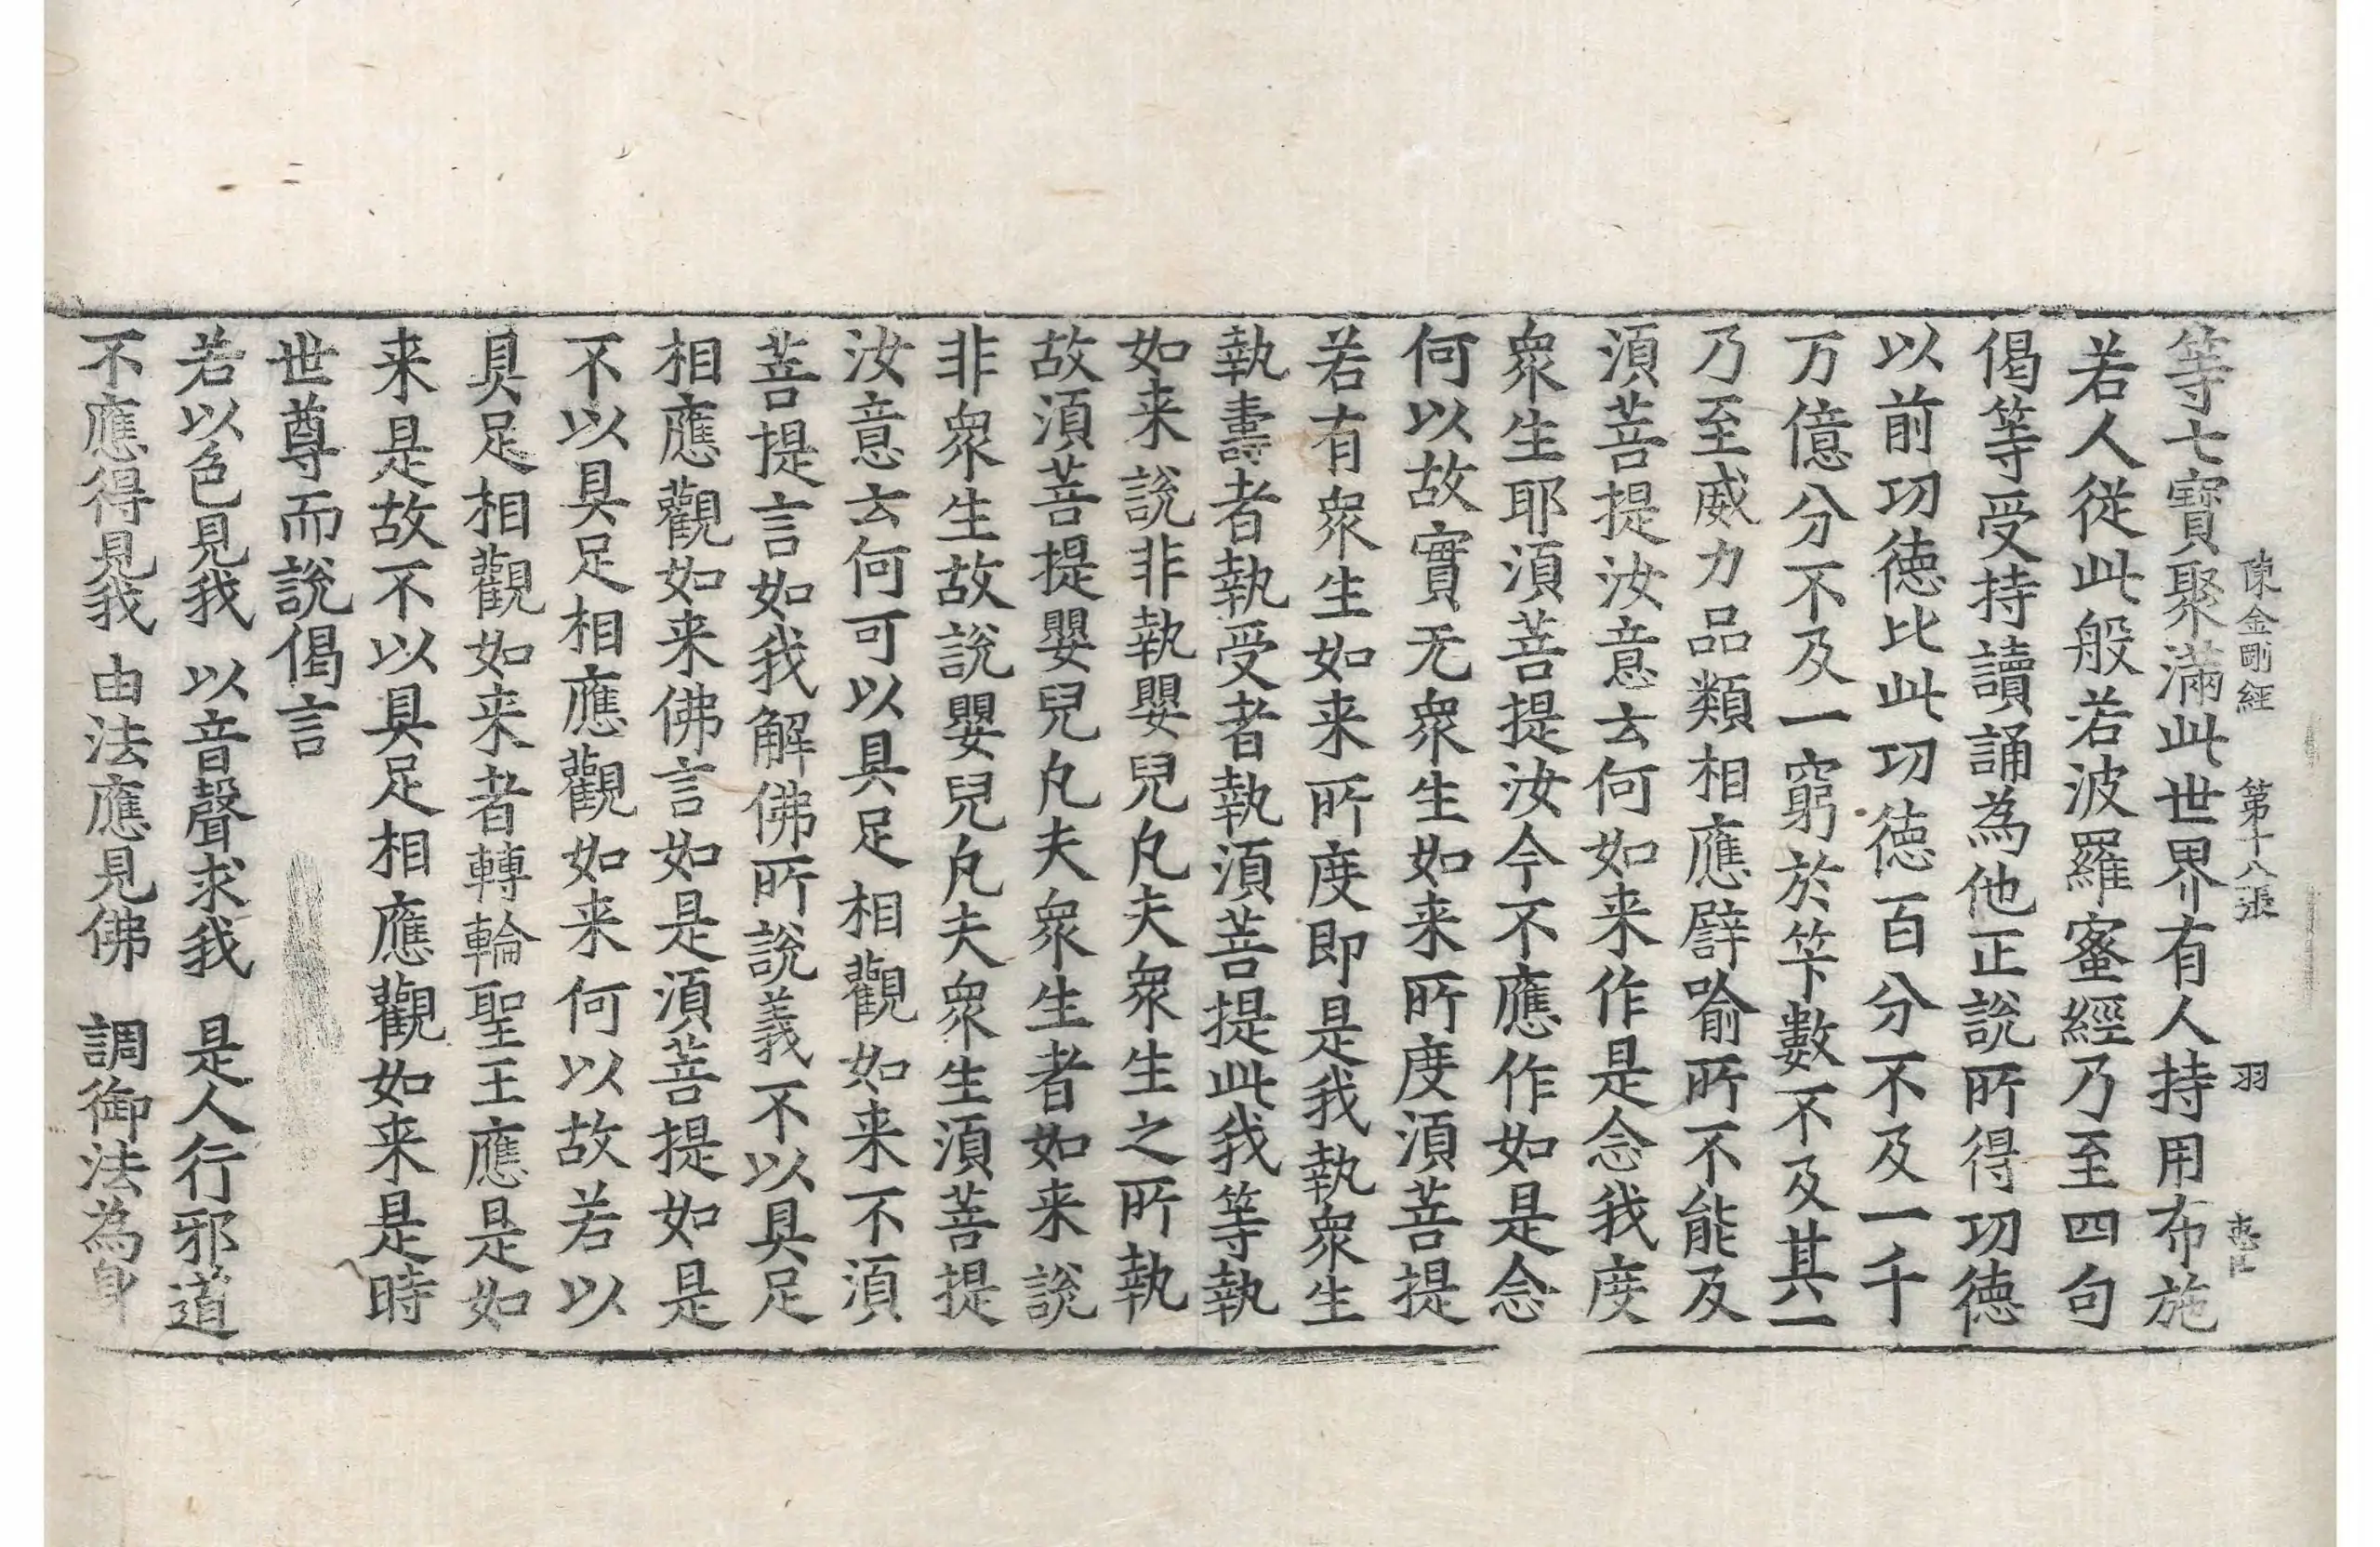 陳金剛經　第十八張　羽
等七寶聚滿此世界有人持用布施
若人從此般若波羅蜜經乃至四句
偈等受持讀誦為他正說所得功德
以前功德比此功德百分不及一千
万億分不及一窮於笇數不及其一
乃至威力品類相應譬喻所不能及
湏菩提汝意云何如来作是念我度
衆生耶湏菩提汝今不應作如是念
何以故實无衆生如来所度湏菩提
若有衆生如来所度即是我執衆生
執壽者執受者執湏菩提此我等執
如来說非執嬰兒凡夫衆生之所執
故湏菩提嬰兒凡夫衆生者如来說
非衆生故說嬰兒凡夫衆生湏菩提
汝意云何可以具足相觀如来不湏
菩提言如我解佛所說義不以具足
相應觀如来佛言如是湏菩提如是
不以具足相應觀如来何以故若以
具足相觀如来者轉輪聖王應是如
来是故不以具足相應觀如来是時
世尊而說偈言
若以色見我　以音聲求我　是人行邪道
不應得見我　由法應見佛　調御法為身